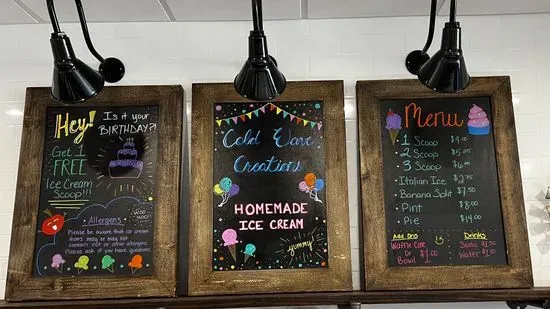 Hey!
Is it your
BIRTHDAY?!
Get 1
FREE
Ice Cream
Scoop!!!
WOO
HOO!
Allergens
Please be aware that ice cream
items may or may not
contain nut or other allergens.
Please ask if you have questions
Cold Wave
Creations
HOMEMADE
ICE CREAM
yummy!
Menu
1 Scoop $4.00
2 Scoop
3 Scoop
• Italian Ice $2.75
• Banana Split $7.50
• Pint $8.00
• Pie $14.00
Add Ons
Waffle Cone
or
Bowl $1.00
Drinks
Soda $1.50
Water